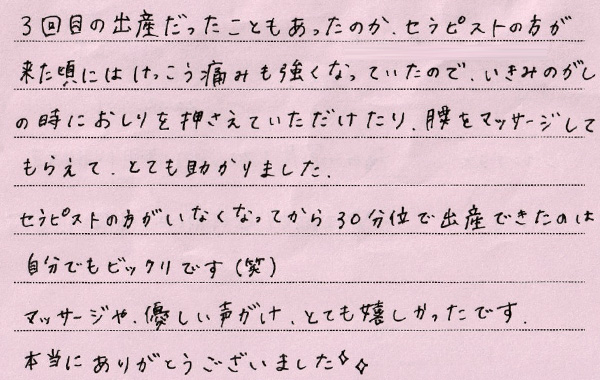 3回目の出産だったこともあったのか、セラピストの方が
来た頃にはけっこう痛みも強くなっていたので、いきみのがし
の時におしりを押さえていただけたり、腰をマッサージして
もらえて、とても助かりました.
セラピストの方がいなくなってから30分位で出産できたのは
自分でもビックリです(笑)
マッサージや、優しい声がけ、とても嬉しかったです.
本当にありがとうございました✧✧